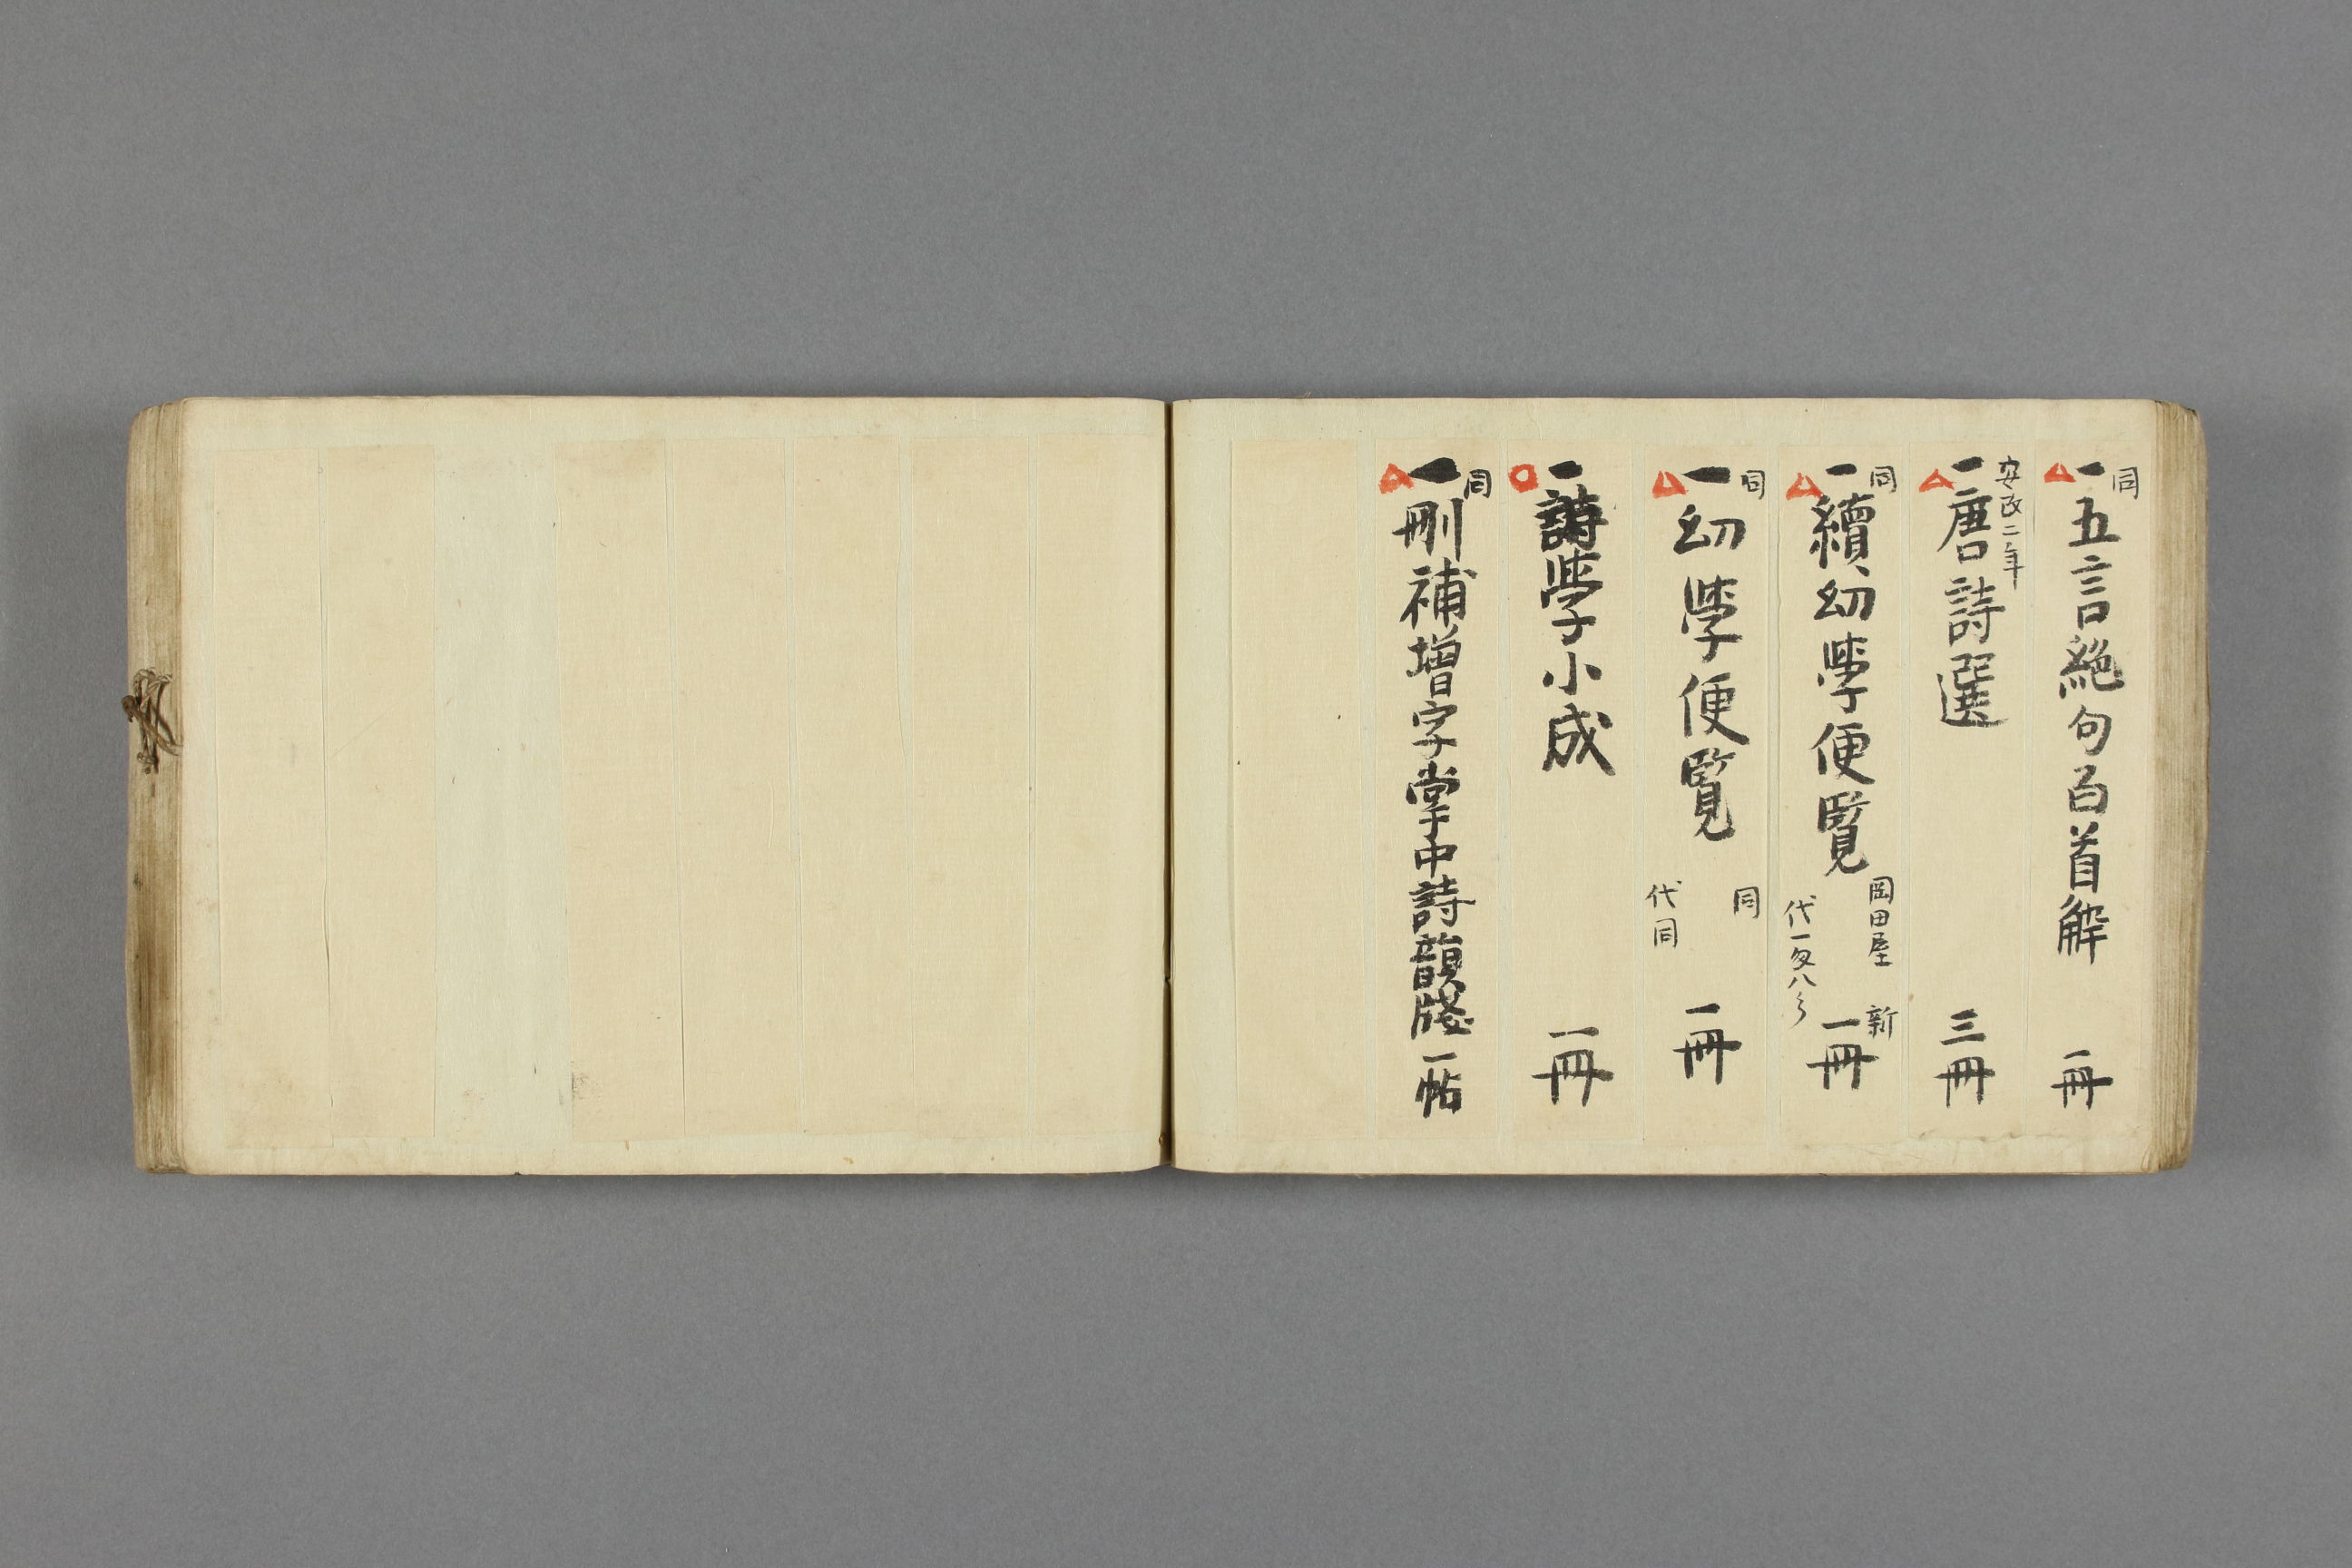 同
一五言絶句百首解 一冊
安政二年
一唐詩選 三冊
同
一續幼學便覧 一冊
岡田屋 新
代一匁八分
同
一幼學便覧 一冊
同
代同
一詩學小成 一冊
同
一刪補増字掌中詩韻牋 一帖